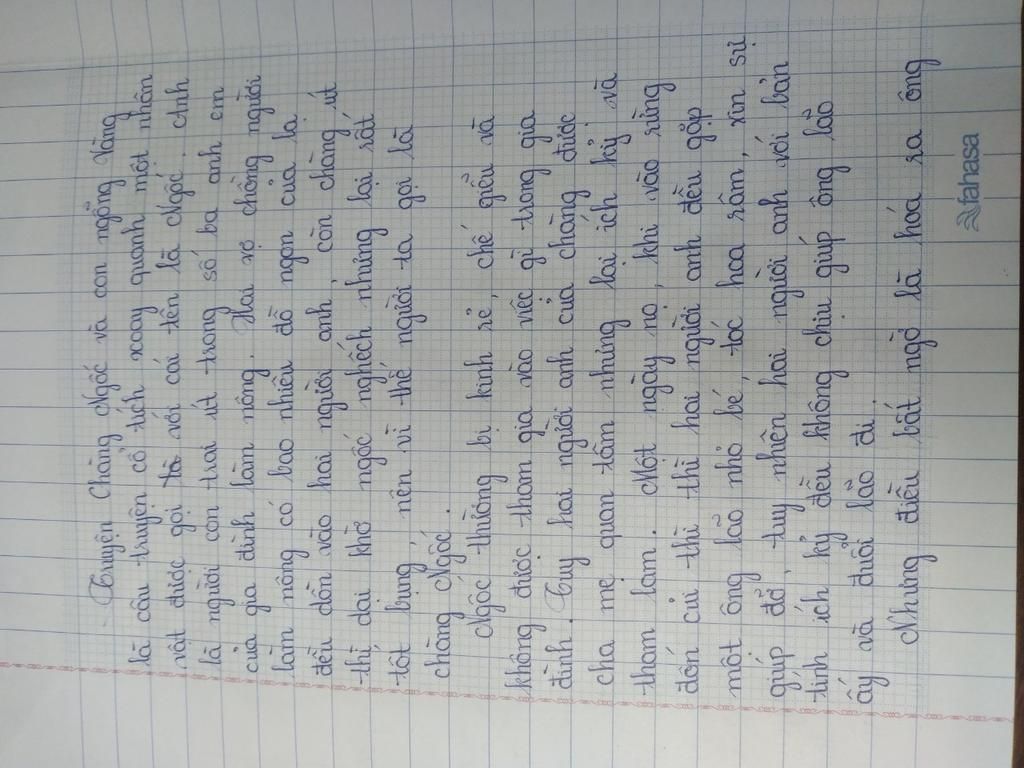 Truyện Chàng Ngốc và con ngỗng vàng
là câu truyện cổ tích xoay quanh một nhân
vật được gọi với cái tên là Ngốc. Anh
là người con trai út trong số ba anh em
của gia đình làm nông. Hai vợ chồng người
làm nông có bao nhiêu đồ ngon của lạ
đều dồn vào hai người anh, còn chàng út
thì dại khờ ngốc nghếch nhưng lại rất
tốt bụng, nên vì thế người ta gọi là
chàng Ngốc.
Ngốc thường bị kinh rẻ, chế giễu và
không được tham gia vào việc gì trong gia
đình. Tuy hai người anh của chàng được
cha mẹ quan tâm nhưng lại ích kỷ và
tham lam. Một ngày nọ, khi vào rừng
đốn củi thì thì hai người anh đều gặp
một ông lão nhỏ bé, tóc hoa râm, xin sự
giúp đỡ, tuy nhiên hai người anh với bản
tính ích kỷ đều không chịu giúp ông lão
ấy và đuổi lão đi.
Nhưng điều bất ngờ là hóa ra ông
fahasa